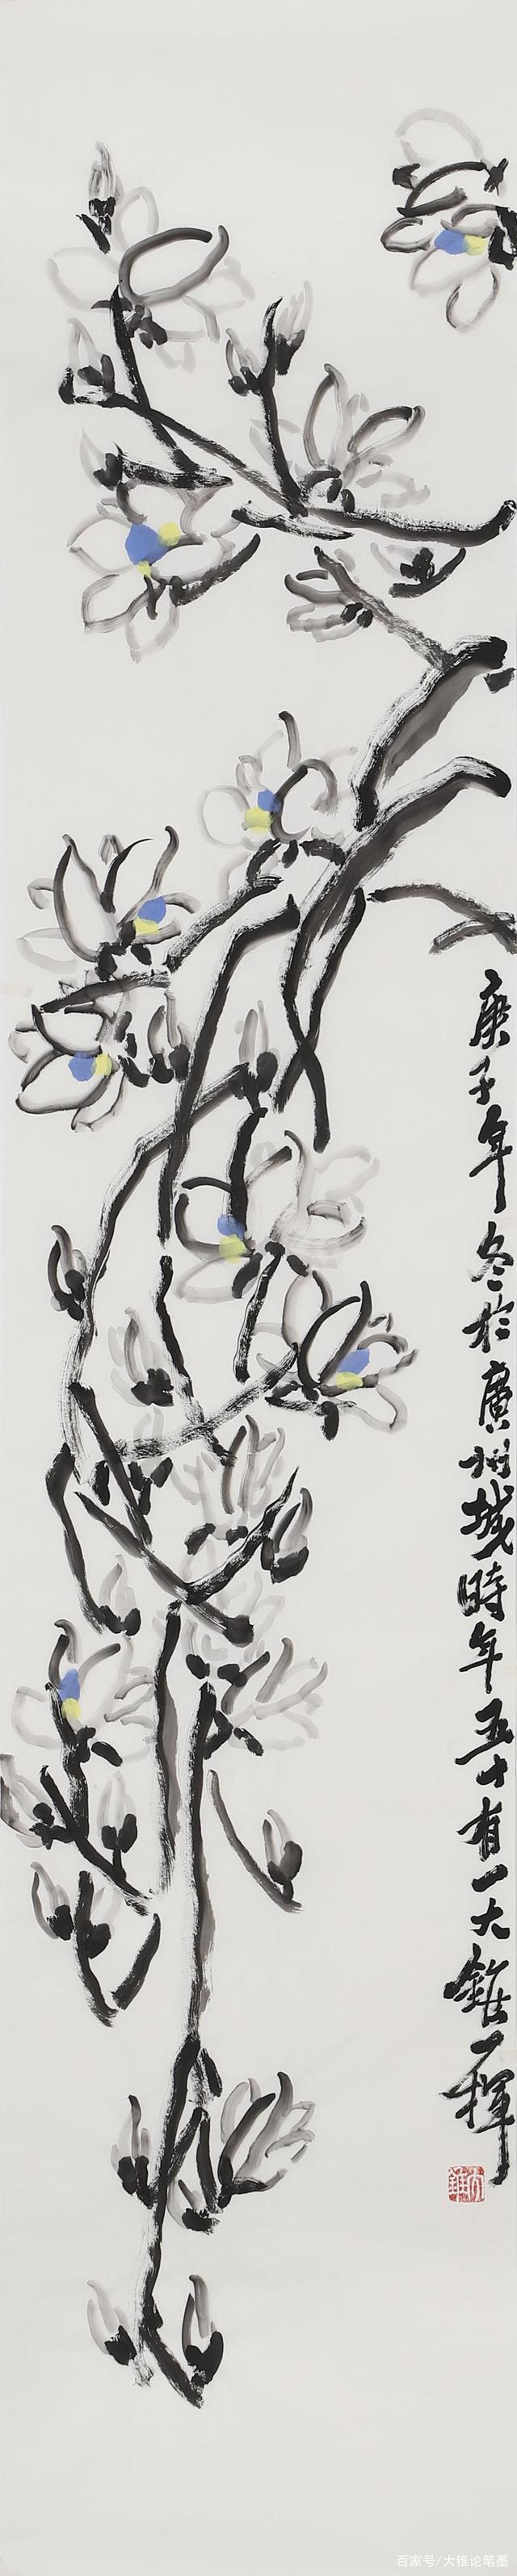 庚子年冬於廣州城時年五十有一大錐一揮
大錐
百家号/大锥论笔墨